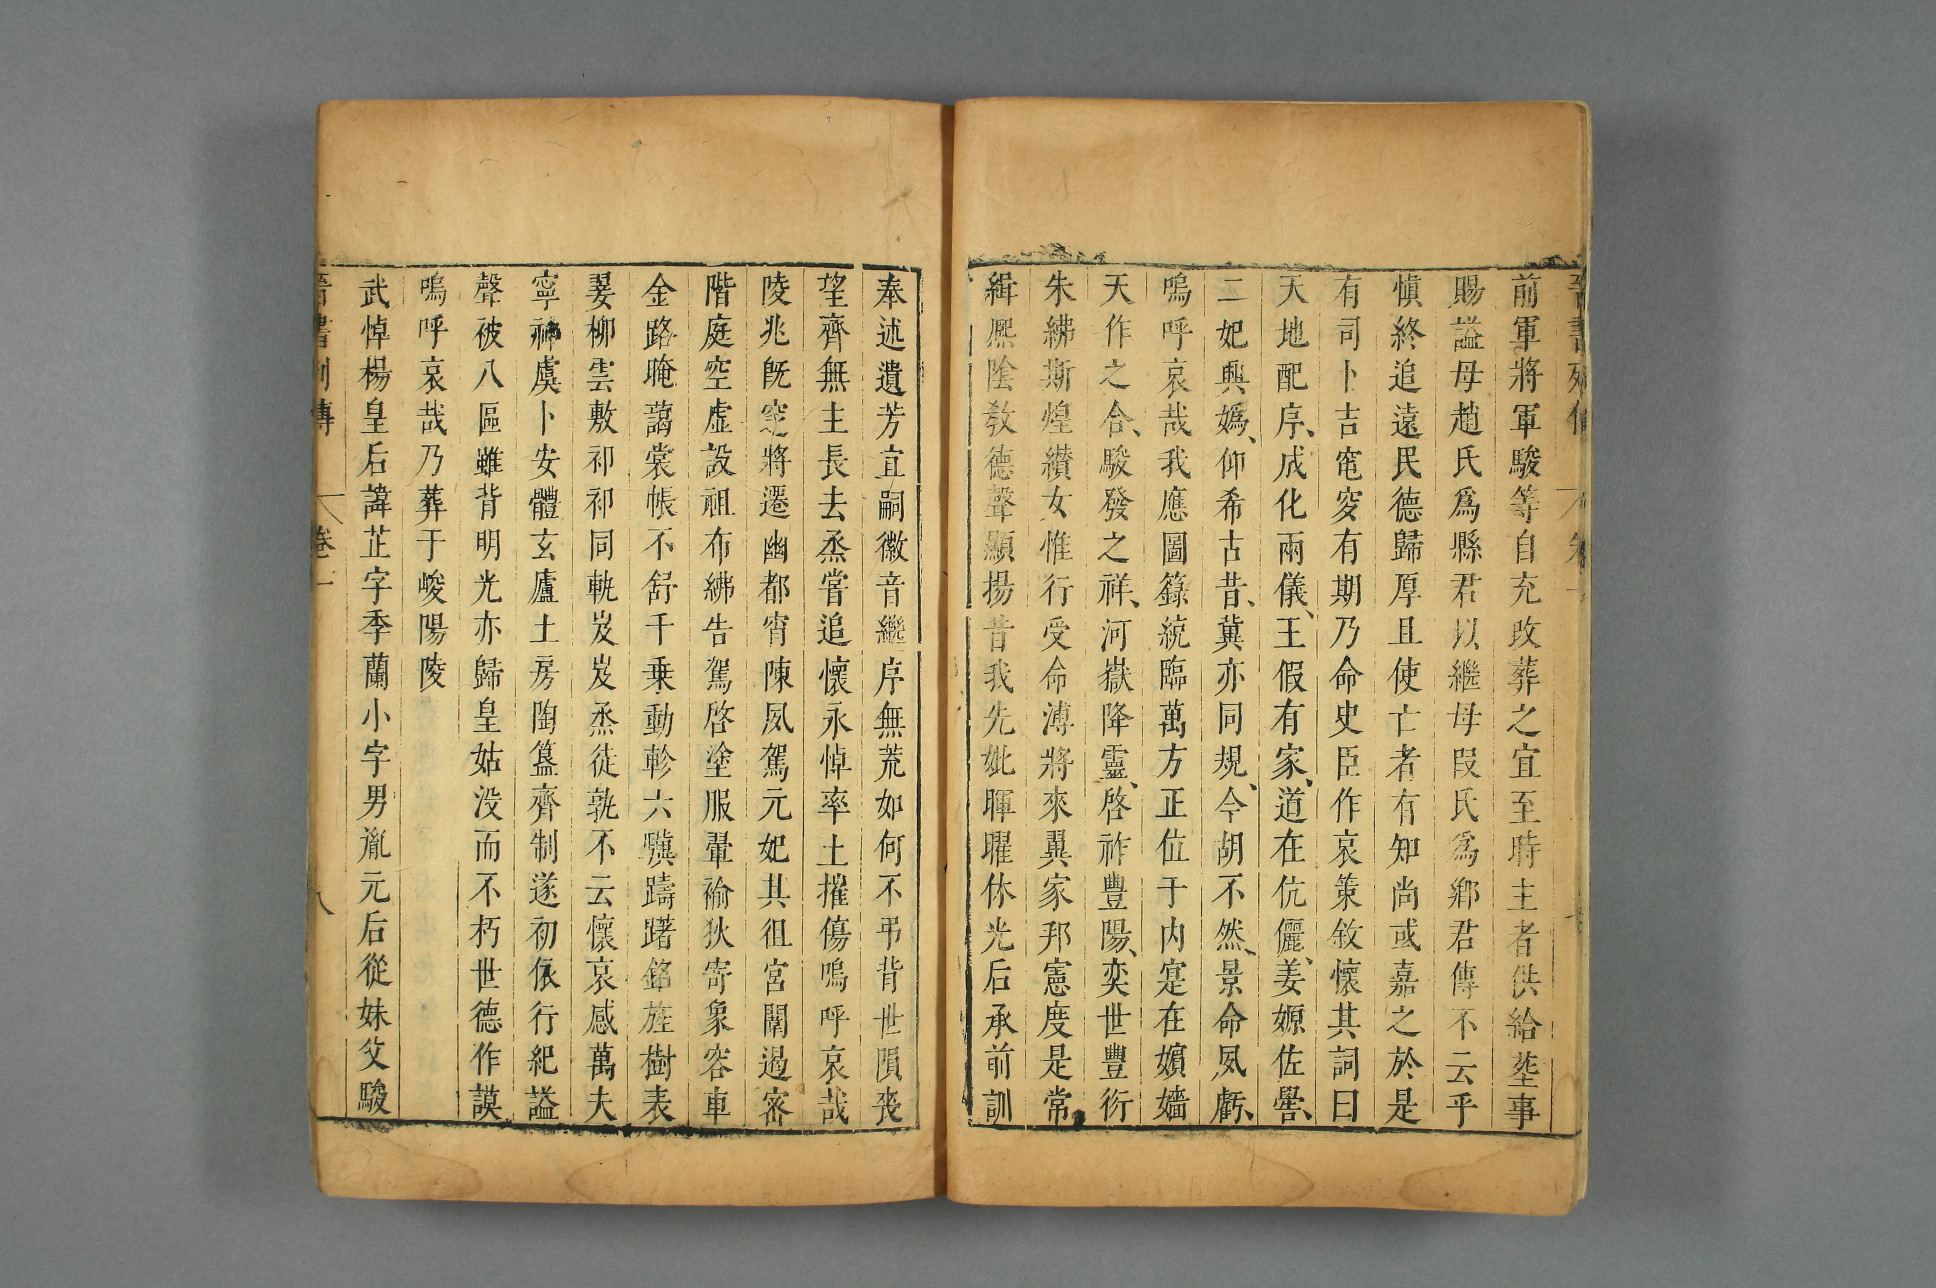 前軍將軍駿等自充改葬之宜至時主者供給塟事
賜謚母趙氏爲縣君以繼母叚氏爲鄉君傳不云乎
慎終追遠民德歸厚且使亡者有知尚或嘉之於是
有司卜吉窀穸有期乃命史臣作哀策敘懷其詞曰
天地配序、成化兩儀、王假有家、道在伉儷、姜嫄佐嚳、
二妃興嬀、仰希古昔、冀亦同規、今胡不然、景命夙虧、
嗚呼哀哉我應圖籙統臨萬方正位于内寔在嬪嬙
天作之合、駿發之祥、河嶽降靈、啓祚豐陽、奕世豐衍
朱紼斯煌纘女惟行受命溥將來翼家邦憲度是常
緝熈陰教德聲顯揚昔我先妣暉曜休光后承前訓
奉述遺芳宜嗣徽音繼序無荒如何不弔背世隕喪
望齊無主長去烝甞追懷永悼率土摧傷嗚呼哀哉
陵兆旣窆將遷幽都宵陳夙駕元妃其徂宮闈遏密
階庭空虛設祖布紼告駕啓塗服翬褕狄寄象容車
金路晻藹裳帳不舒千乗動軫六驥躊躇銘旌樹表
翣柳雲敷祁祁同軌岌岌烝徒孰不云懷哀感萬夫
寧神虞卜安體玄廬土房陶簋齊制遂初依行紀謚
聲被八區雖背明光亦歸皇姑没而不朽世德作謨
嗚呼哀哉乃葬于峻陽陵
武悼楊皇后諱芷字季蘭小字男胤元后從妹父駿
晋書列傳 卷一 八